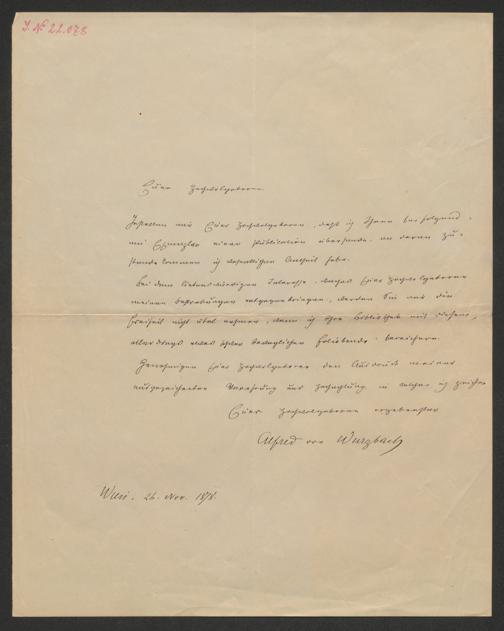 I. N. 22.078
Euer Hochwohlgeboren
Gestatten mir Euer Hochwohlgeboren, daß ich Ihnen beifolgend
ein Exemplar einer Publication übersende, an deren Zu-
standekommen ich wesentlichen Antheil habe.
Bei dem liebenswürdigen Interesse, welches Euer Hochwohlgeboren
meinen Bestrebungen entgegenbringen, werden Sie mir die
Freiheit nicht übel nehmen, wenn ich Ihre Bibliothek mit diesem,
allerdings etwas schwer beweglichen Foliobande, bereichere.
Genehmigen Euer Hochwohlgeboren den Ausdruck meiner
ausgezeichneten Verehrung und Hochachtung in welcher ich zeichne
Euer Hochwohlgeboren ergebenster
Alfred von Wurzbach
Wien. 26. Nov. 1878.